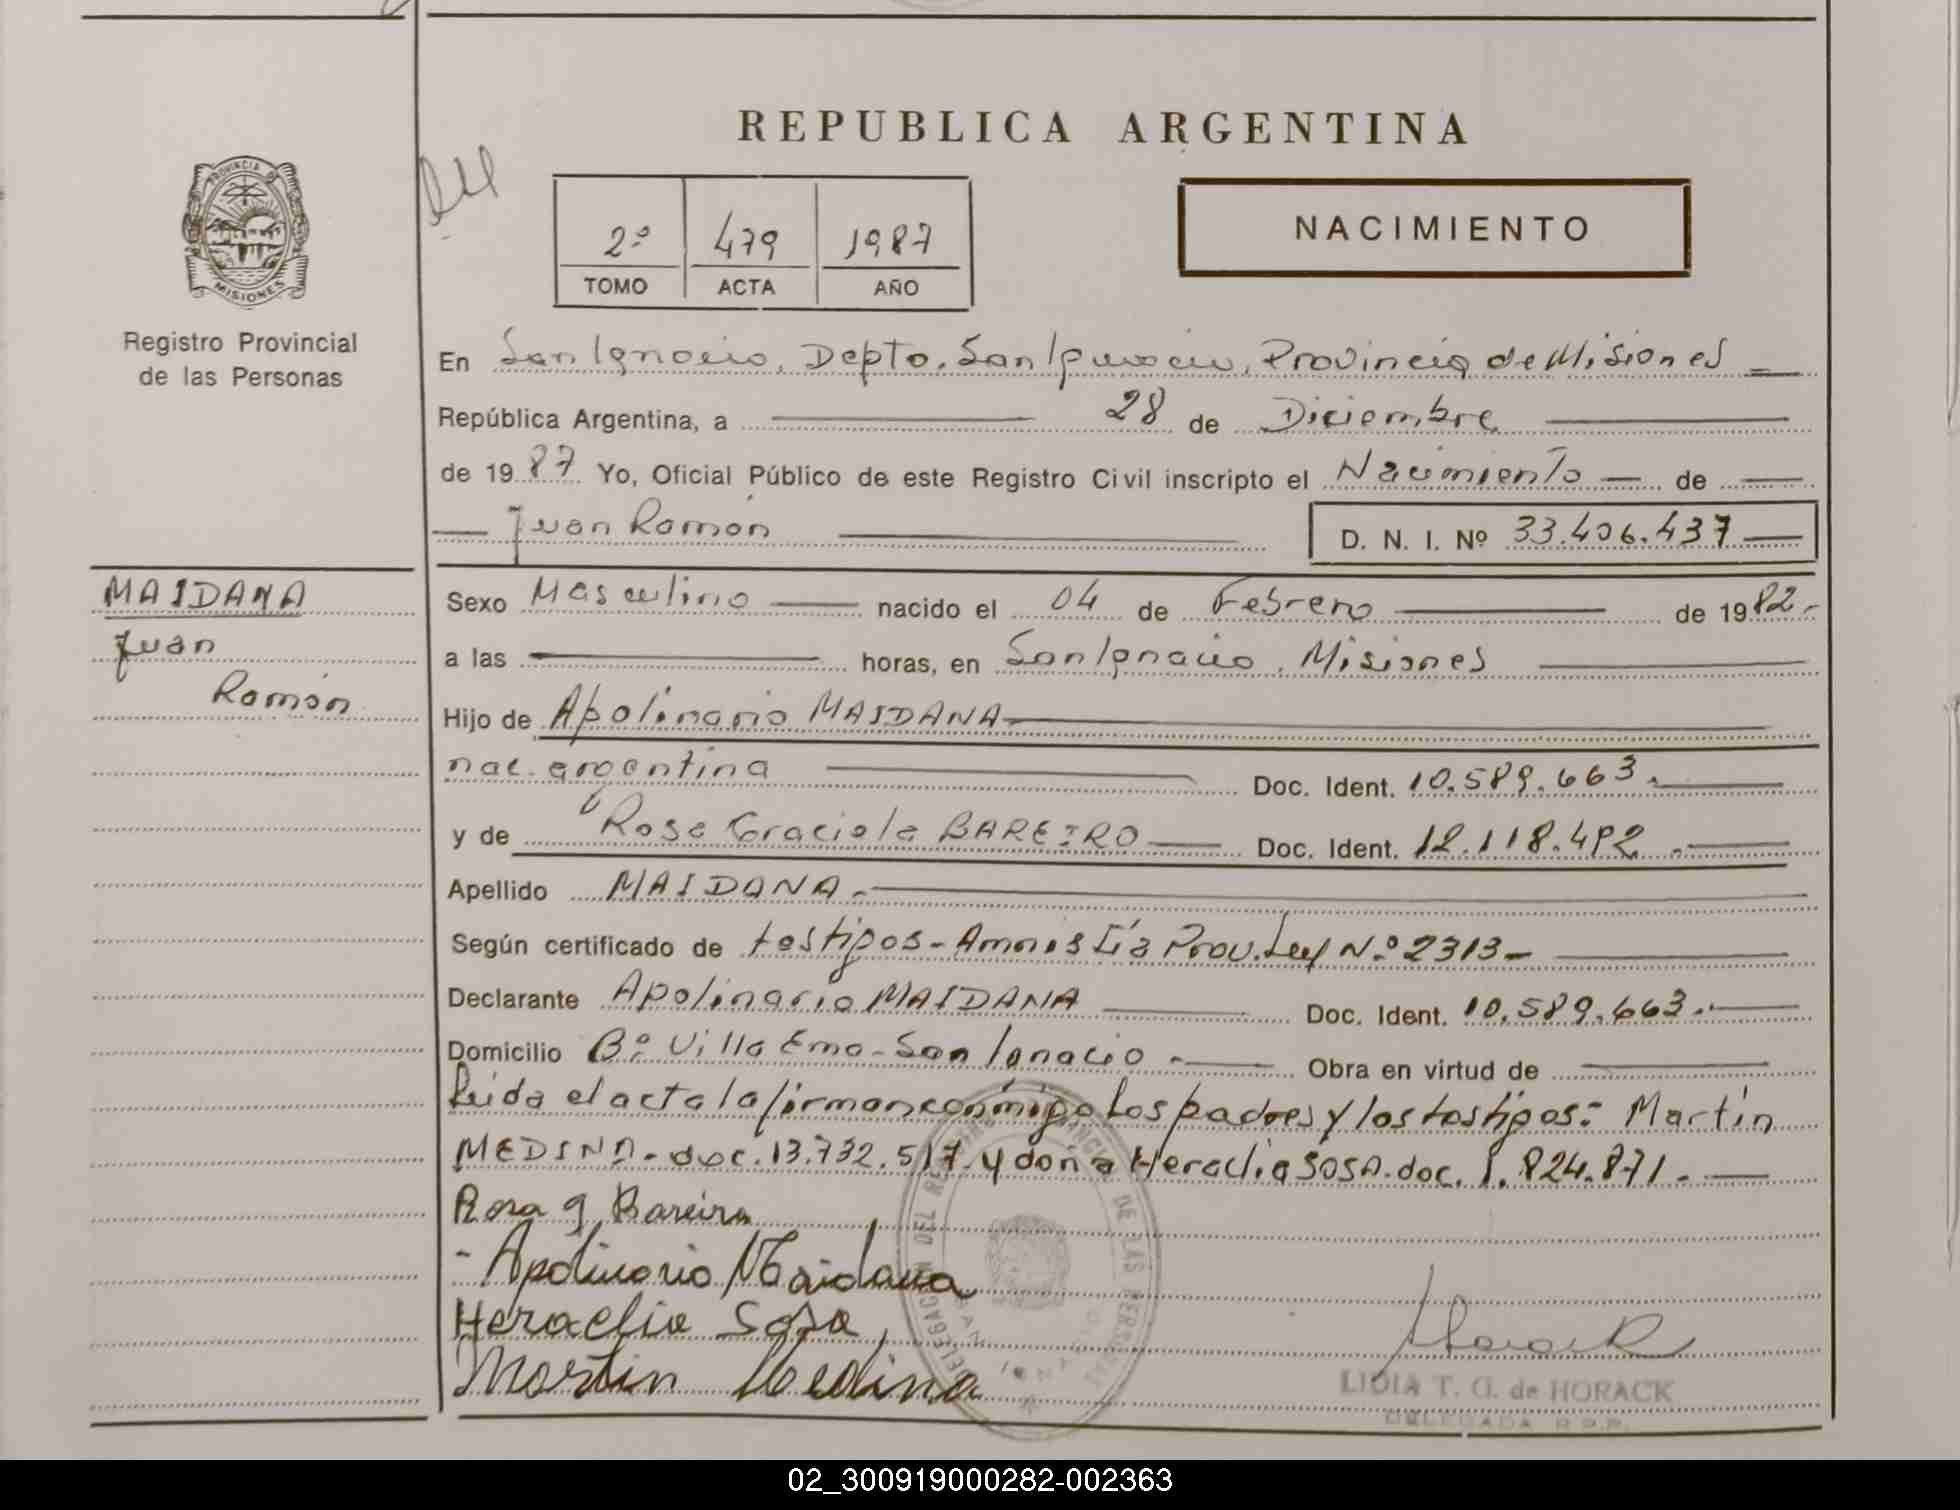 REPUBLICA ARGENTINA
PROVINCIA DE
MISIONES
Registro Provincial
de las Personas
2º 479 1987
TOMO ACTA AÑO
NACIMIENTO
En San Ignacio, Depto. San Ignacio, Provincia de Misiones
República Argentina, a 28 de Diciembre
de 1987 Yo, Oficial Público de este Registro Civil inscripto el Nacimiento de
Juan Ramón D. N. I. Nº 33.406.437
MAIDANA
Juan
Ramón
Sexo Masculino nacido el 04 de Febrero de 1982.-
a las horas, en San Ignacio. Misiones
Hijo de Apolinario MAIDANA
nac. argentina Doc. Ident. 10.589.663.
y de Rosa Graciela BAREIRO Doc. Ident. 12.118.492.
Apellido MAIDANA.
Según certificado de testigos - Amnistía Prov. Ley N.º 2313-
Declarante Apolinario MAIDANA Doc. Ident. 10.589.663.
Domicilio Bº Villa Ema - San Ignacio.- Obra en virtud de
Leida el acta la firman conmigo los padres y los testigos: Martín
MEDINA - doc. 13.732.517 y doña Heraclia SOSA. doc. 1.824.871.
Rosa g Bareiro
- Apolinario Maidana
Heraclia Sosa
Martin Medina
DELEGACION DEL REGISTRO PROVINCIAL DE LAS PERSONAS
SAN IGNACIO
Horack
LIDIA T. G. de HORACK
DELEGADA R.P.P.
02_300919000282-002363